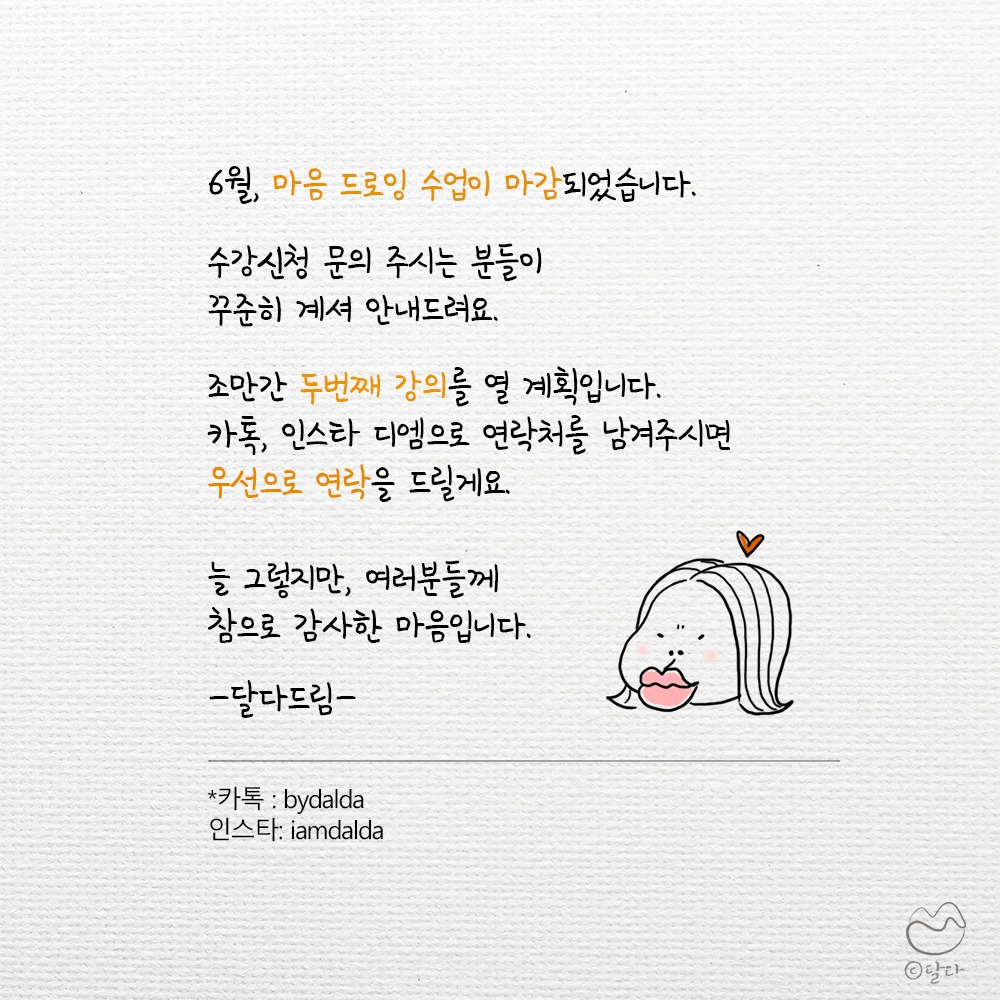 6월, 마음 드로잉 수업이 마감되었습니다.
수강신청 문의 주시는 분들이
꾸준히 계셔 안내드려요.
조만간 두번째 강의를 열 계획입니다.
카톡, 인스타 디엠으로 연락처를 남겨주시면
우선으로 연락을 드릴게요.
늘 그렇지만, 여러분들께
참으로 감사한 마음입니다.
-달다드림-
*카톡 : bydalda
인스타: iamdalda
©달다